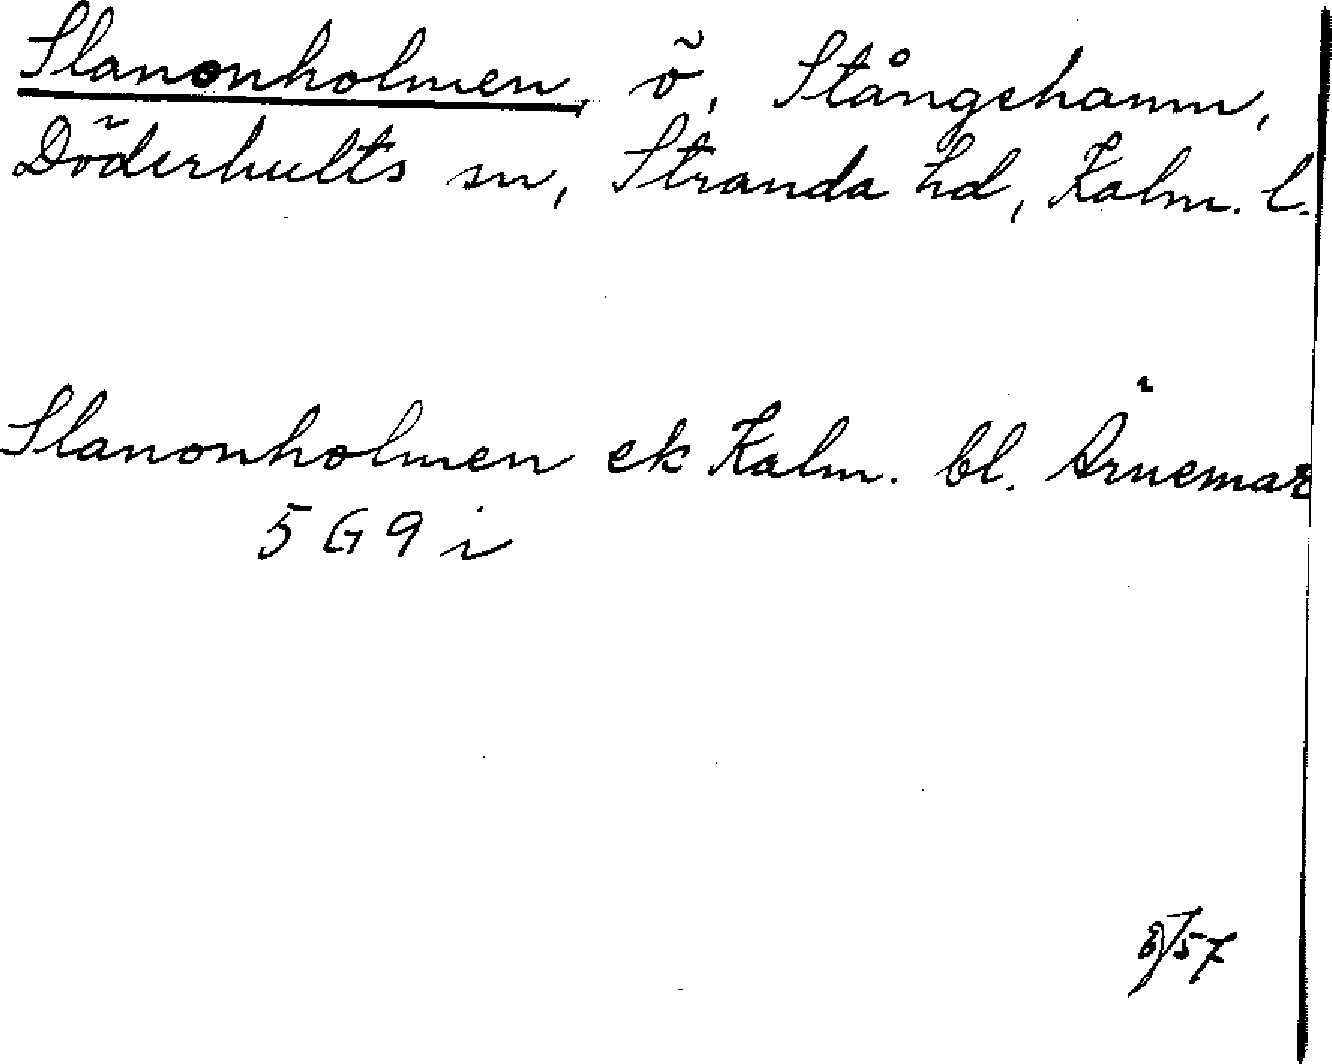 Slanonholmen, ö, Stångehamn,
Döderhults sn, Stranda hd, Kalm. l.
Slanonholmen ek Kalm. bl. Ärnemar
5 G 9 i